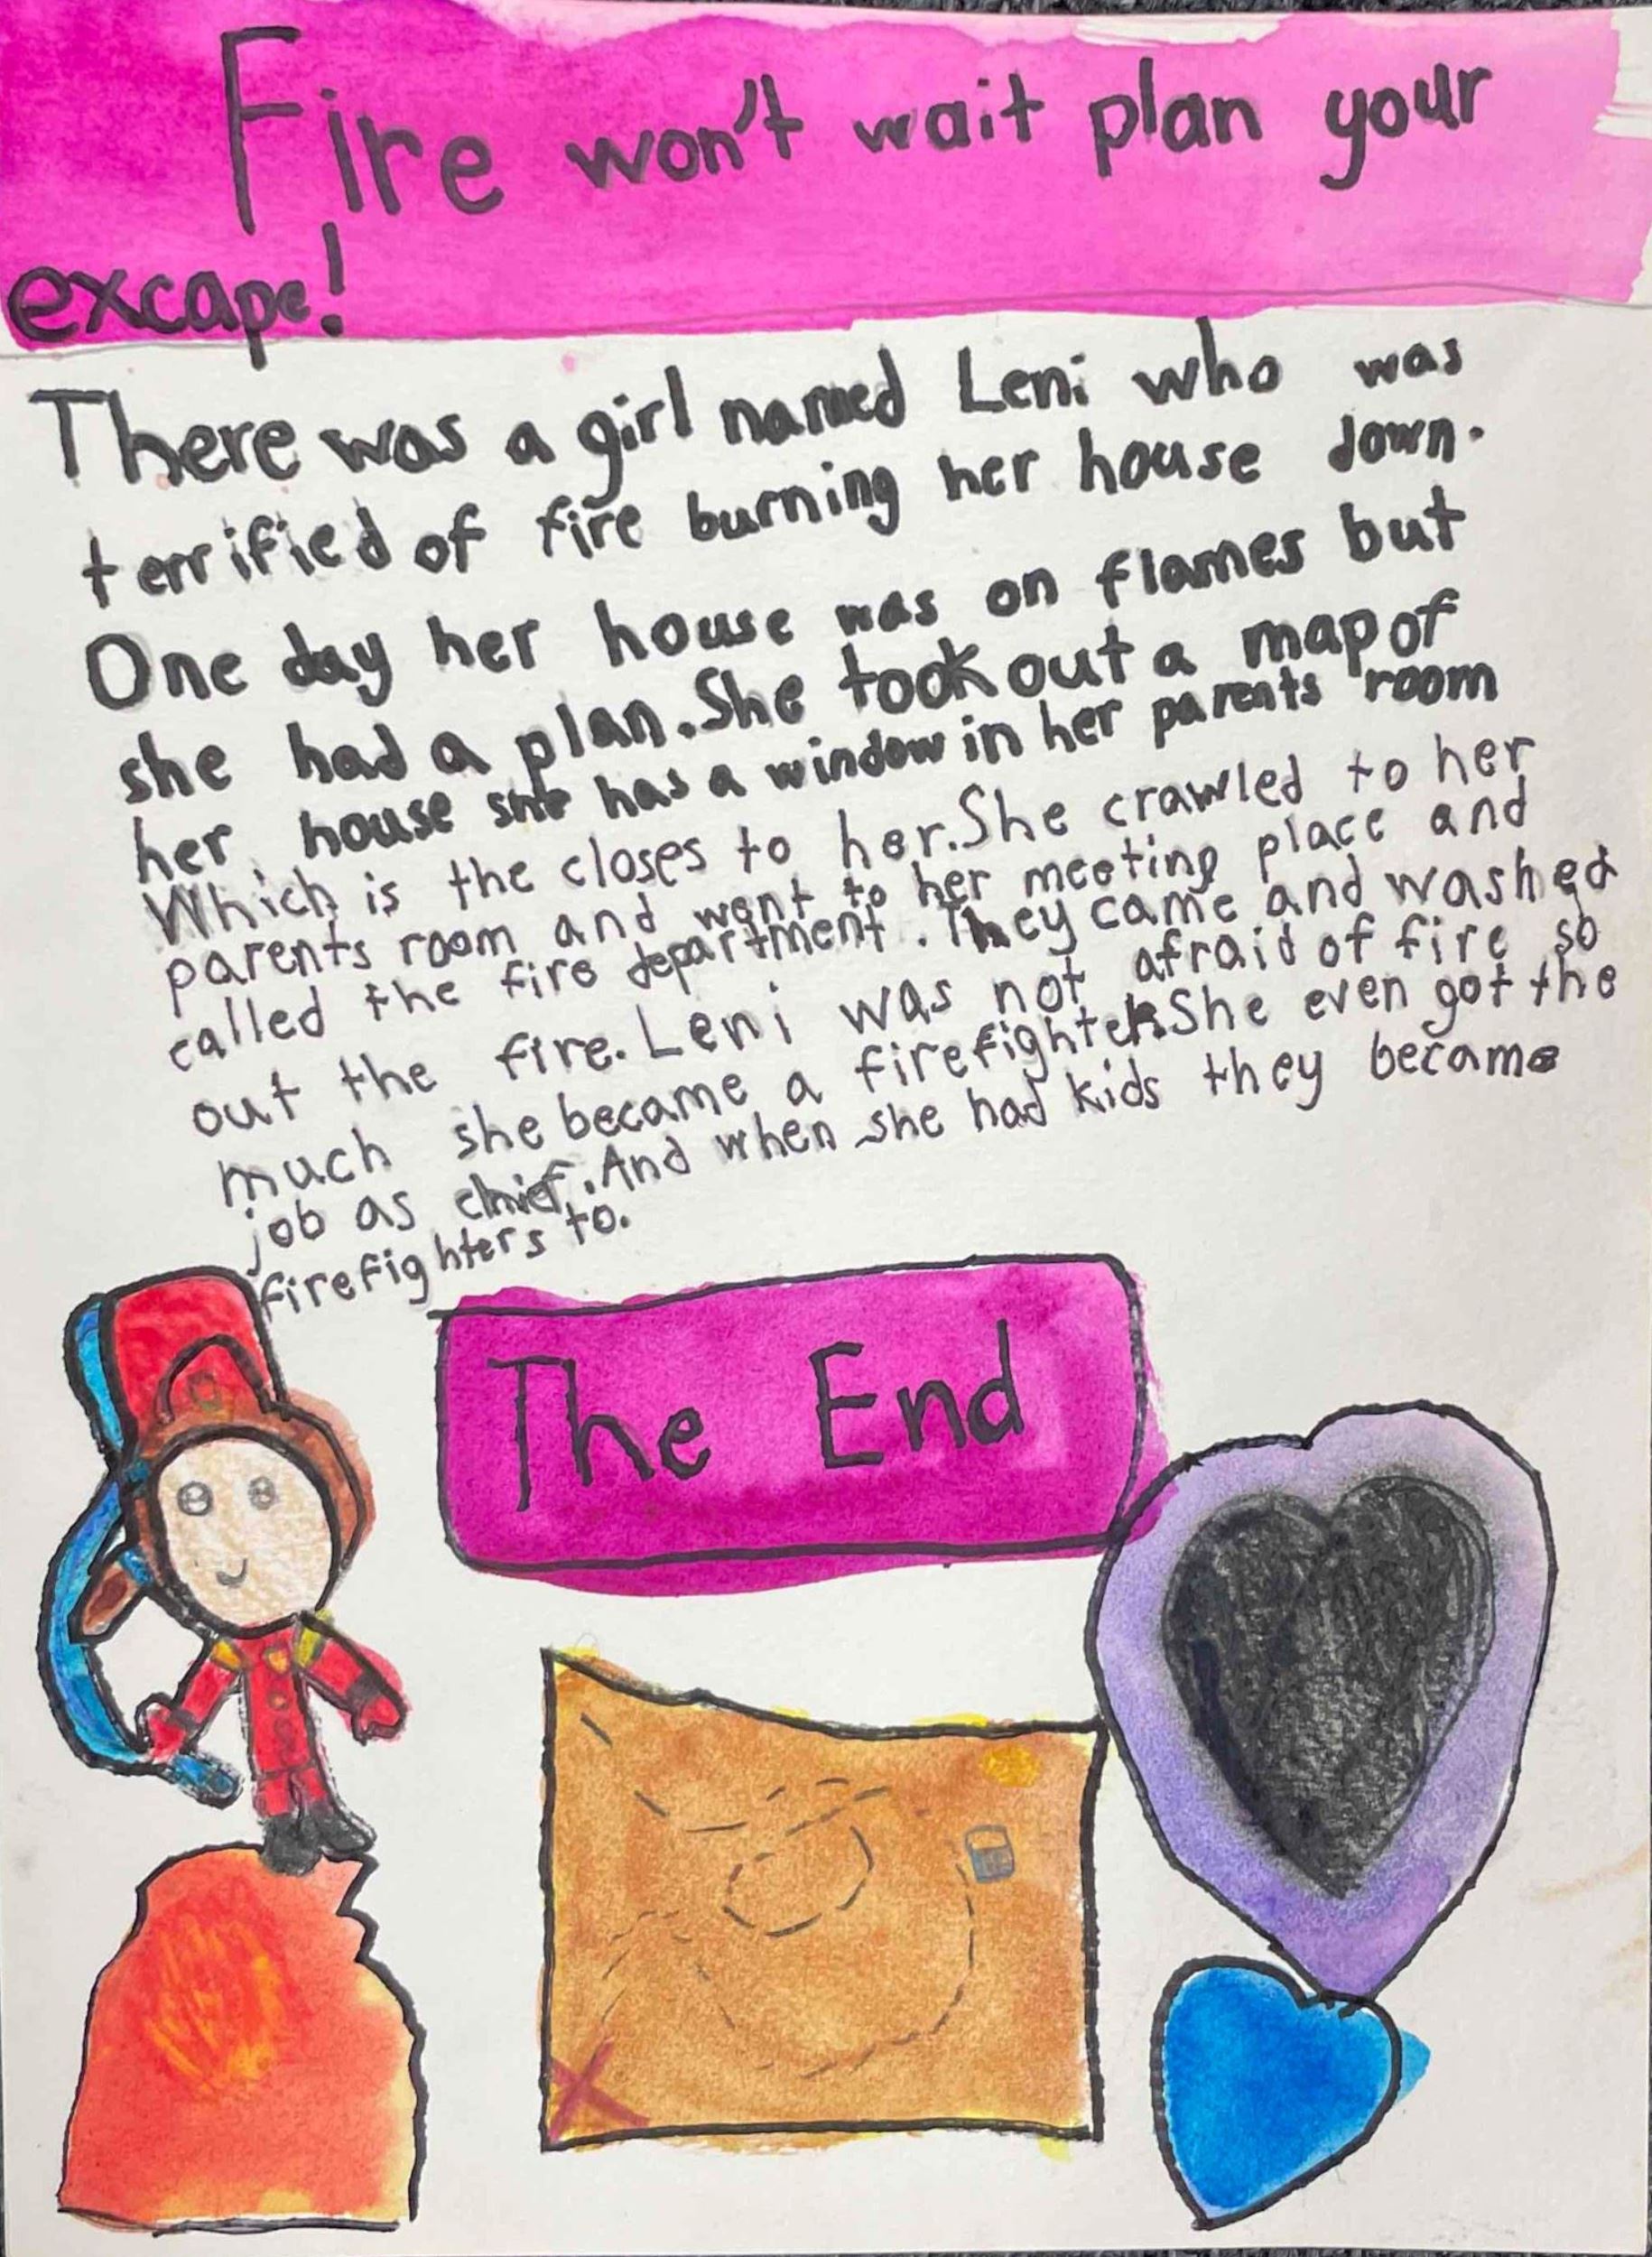 Fire won't wait plan your
excape!
There was a girl named Leni who was
terrified of fire burning her house down.
One day her house was on flames but
she had a plan. She took out a map of
her house she has a window in her parents room
Which is the closes to her. She crawled to her
parents room and went to her meeting place and
called the fire department. They came and washed
out the fire. Leni was not afraid of fire so
much she became a firefighter. She even got the
job as chief. And when she had kids they became
firefighters to.
The End